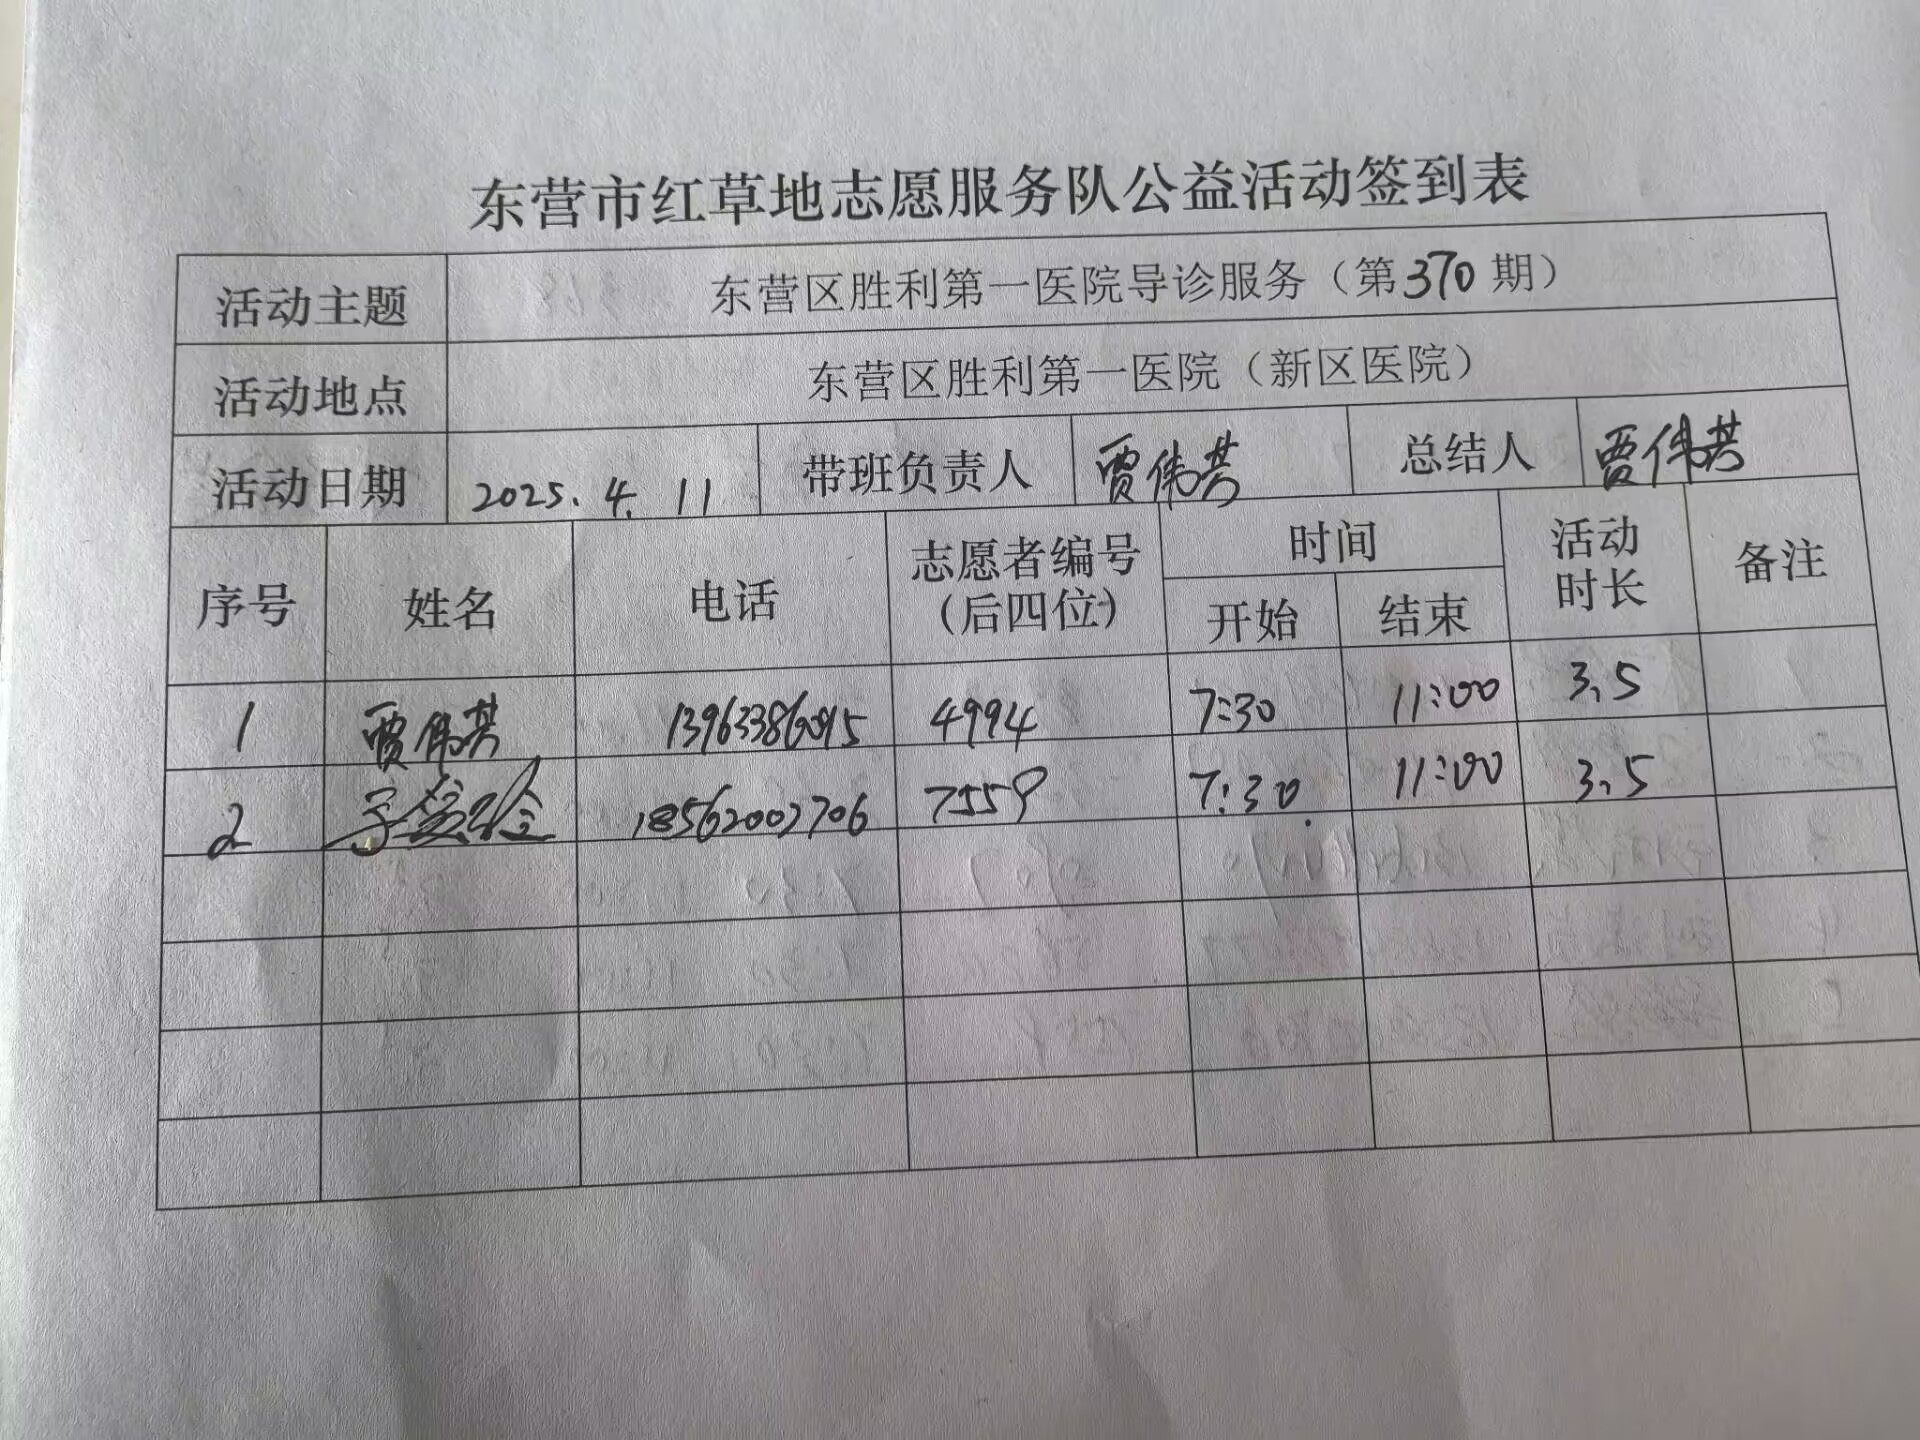 东营市红草地志愿服务队公益活动签到表
活动主题 东营区胜利第一医院导诊服务（第370期）
活动地点 东营区胜利第一医院（新区医院）
活动日期 2025.4.11 带班负责人 贾伟芸 总结人 贾伟芸
序号 姓名 电话 志愿者编号（后四位） 时间 开始 结束 活动时长 备注
1 贾伟芸 13963386095 4994 7:30 11:00 3.5
2 18562002706 7559 7:30 11:00 3.5